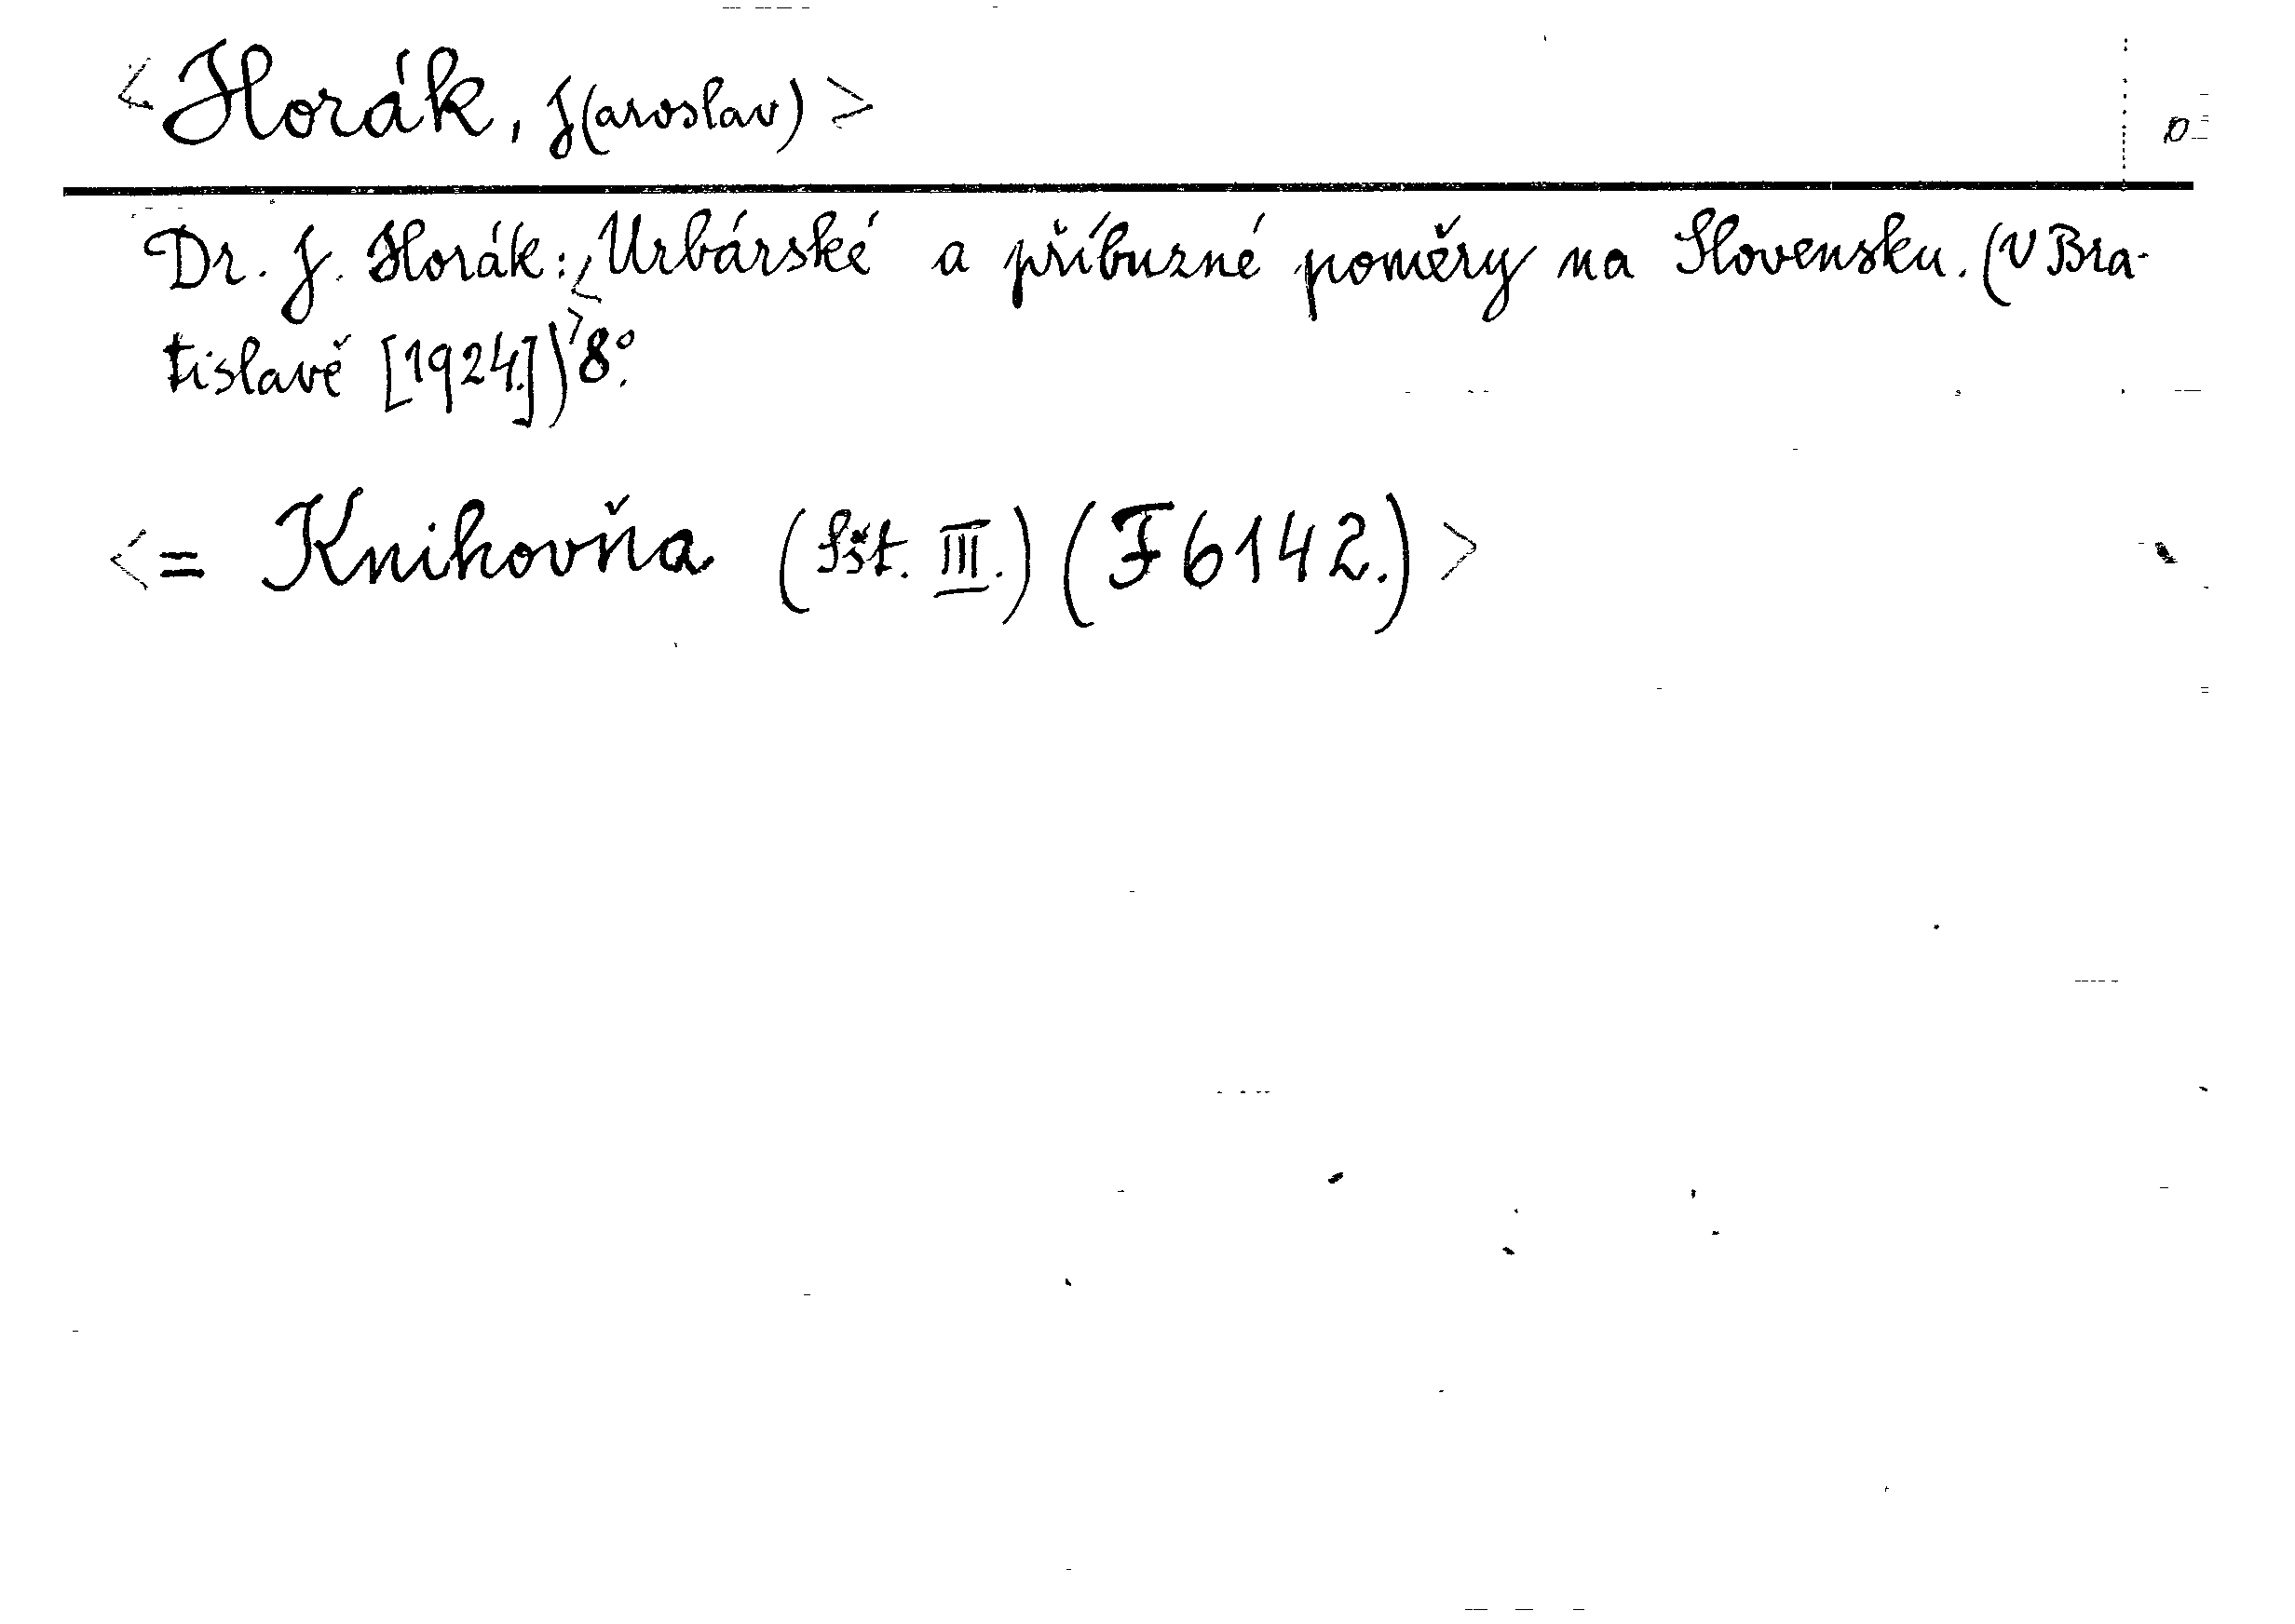 <Horák, J(aroslav)>
Dr. J. Horák: <Urbárské a příbuzné poměry na Slovensku. (V Bra-
tislavě [1924.])> 8°.
<= Knihovňa (Sšt. III.) (F 6142.)>